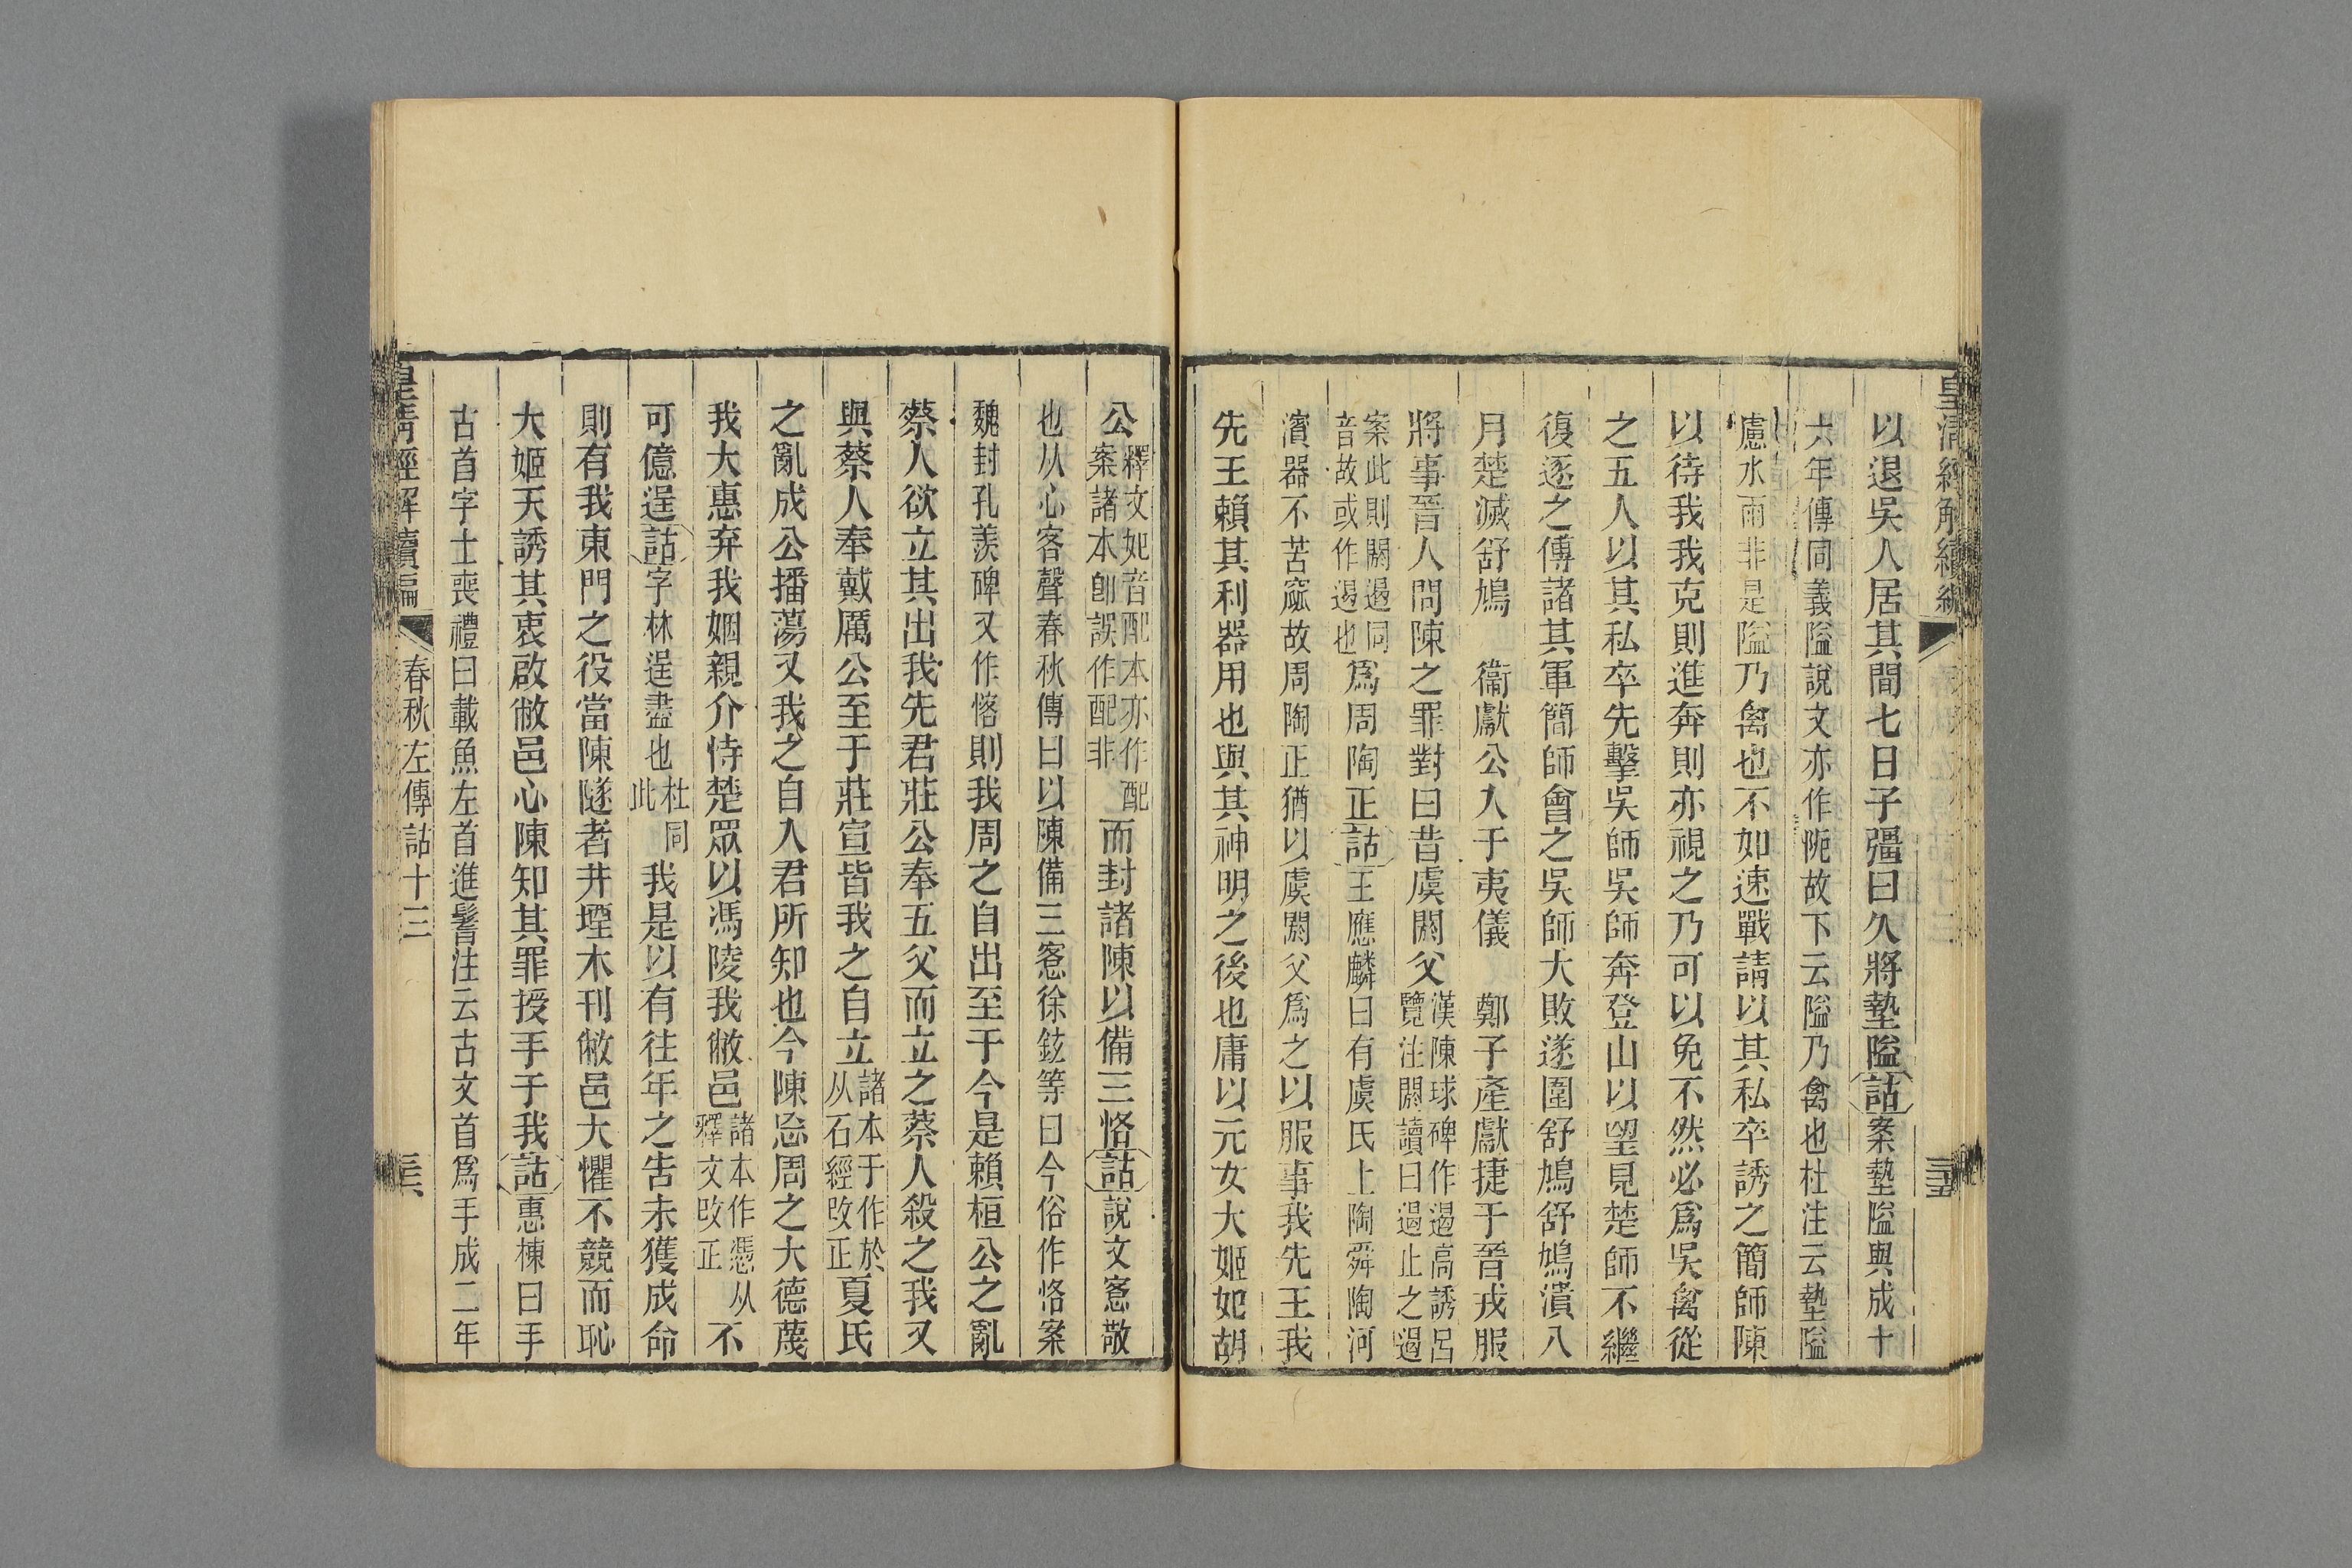 皇清經解續編
以退吳人居其間七日子彊曰久將墊隘詁案墊隘與成十
六年傳同義隘說文亦作阸故下云隘乃禽也杜注云墊隘
慮水雨非是隘乃禽也不如速戰請以其私卒誘之簡師陳
以待我我克則進奔則亦視之乃可以免不然必爲吳禽從
之五人以其私卒先擊吳師吳師奔登山以望見楚師不繼
復逐之傅諸其軍簡師會之吳師大敗遂圍舒鳩舒鳩潰八
月楚滅舒鳩　衞獻公入于夷儀　鄭子產獻捷于晉戎服
將事晉人問陳之罪對曰昔虞閼父漢陳球碑作遏高誘呂覽注閼讀曰遏止之遏
案此則閼遏同音故或作遏也爲周陶正詁王應麟曰有虞氏上陶舜陶河
濱器不苦窳故周陶正猶以虞閼父爲之以服事我先王我
先王賴其利器用也與其神明之後也庸以元女大姬妃胡
公釋文妃音配本亦作配案諸本卽誤作配非而封諸陳以備三恪詁說文愙敬
也从心客聲春秋傳曰以陳備三愙徐鉉等曰今俗作恪案
魏封孔羨碑又作愘則我周之自出至于今是賴桓公之亂
蔡人欲立其出我先君莊公奉五父而立之蔡人殺之我又
與蔡人奉戴厲公至于莊宣皆我之自立諸本于作於从石經改正夏氏
之亂成公播蕩又我之自入君所知也今陳忘周之大德蔑
我大惠弃我姻親介恃楚眾以馮陵我敝邑諸本作憑从釋文改正不
可億逞詁字林逞盡也杜此同我是以有往年之吿未獲成命
則有我東門之役當陳隧者井堙木刊敝邑大懼不競而恥
大姬天誘其衷啟敝邑心陳知其罪授手于我詁惠棟曰手
古首字士喪禮曰載魚左首進鬐注云古文首爲手成二年
皇清經解續編　春秋左傳詁十三